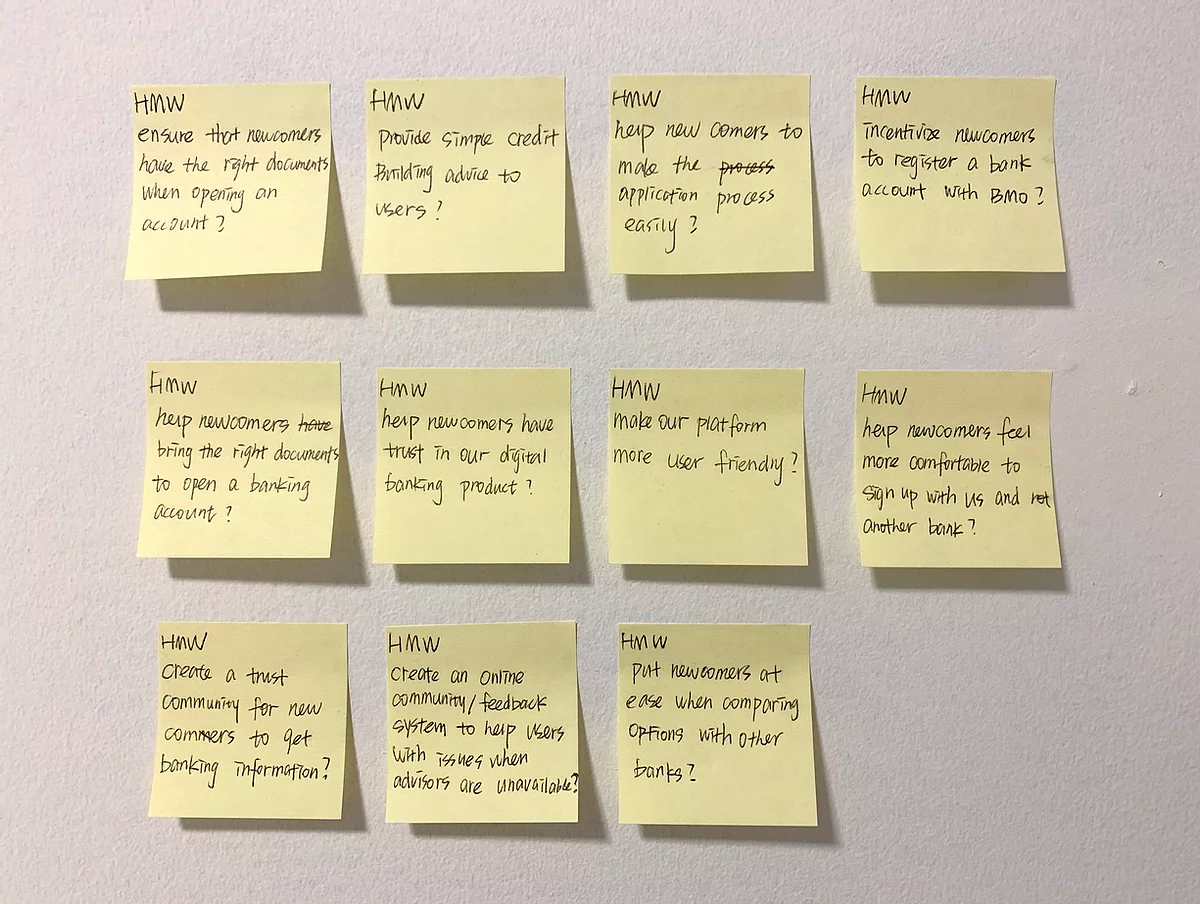 HMW
ensure that newcomers
have the right documents
when opening an
account?
HMW
provide simple credit
Building advice to
users?
HMW
help new comers to
make the process
application process
easily?
HMW
incentivize newcomers
to register a bank
account with BMO?
HMW
help newcomers have
bring the right documents
to open a banking
account?
HMW
help newcomers have
trust in our digital
banking product?
HMW
make our platform
more user friendly?
HMW
help newcomers feel
more comfortable to
sign up with us and not
another bank?
HMW
Create a trust
community for new
commers to get
banking information?
HMW
Create an online
community/feedback
system to help users
with issues when
advisors are unavailable?
HMW
put newcomers at
ease when comparing
options with other
banks?